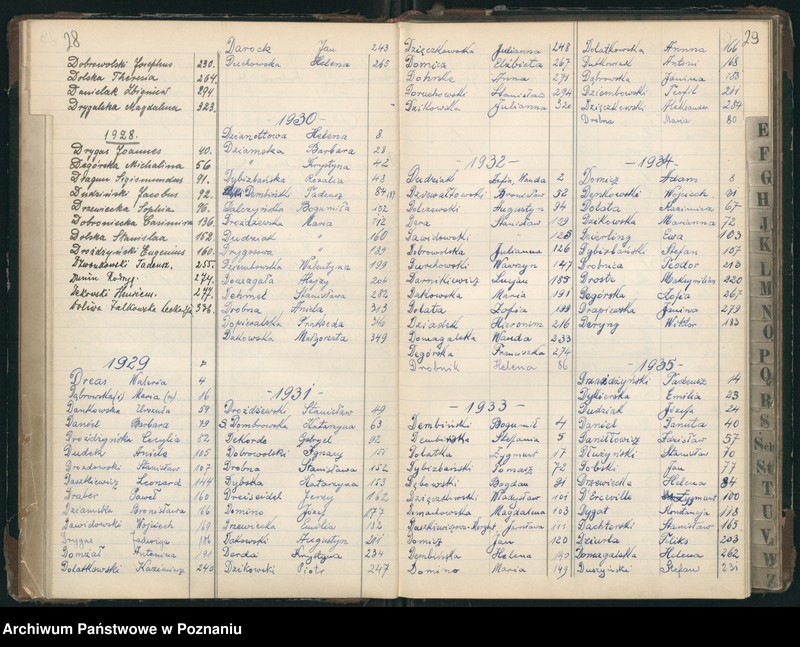 28
Dobrowolski Josephus 230.
Dolska Theresia 264.
Danielak Zbigniew 294.
Drygalska Magdalena 323.
1928.
Drygas Joannes 40.
Degórska Michalina 56
Dragun Sigismundus 91.
Dudziński Jacobus 92.
Drzewiecka Sophia 96.
Dobroniecka Casimira 136.
Dolska Stanislaa 152.
Drożdżyński Eugenius 160.
Tadeusz. 255.
Dunin Rodryg. 274.
Dekowski Henricus. 277.
1929
Dreas Waleria 4
Dąbrowska Maria 16
Dankowska Urszula 59
Daniel Barbara 79
Cecylia 82
Dudek Aniela 105
Drozdowski Stanisław 107
Daszkiewicz Leonard 144
Draber Paweł 160
Dziamska Bronisława 16
Dawidowski Wojciech 169
Drygas Jadwiga 186
Domżał Antonina 191
Dolatkowski Kazimierz 245
Darock Jan 243
Duchowska Helena 265
1930
Dzianottowa Helena 8
Dziamska Barbara 28
" Krystyna 42
Dybizbańska Rozalia 48
Dembiński Tadeusz 84
Dalczyńska Bogumiła 132
Drożdżewska Maria 142
Dudziak " 160
Drygasowa " 189
Dziembowska Walentyna 199
204
Dehmel Stanisława 282
Drobna Aniela 313
Dopieralska Pankreda 340
Dakowska Małgorzata 349
1931
Drożdżewski Stanisław 49
Dombrowska Katarzyna 63
Dekorda Gabryel 92
Dobrowolski Ignacy 151
Drobna Stanisława 152
Dybska Katarzyna 153
Dreiseidel Jerzy 162
Domcz Józef 177
Drzewiecka Emilia 182
Dakowski Augustyn 201
Dorda Krystyna 234
Dzikowski Piotr 247
Dzięczkowska Julianna 248
Domicz Elżbieta 267
Dohnke Anna 271
Doruchowski Stanisław 294
Dzikowska Julianna 320
- 1932 -
Dudziak Zofia, Wanda 2
Dziewiałkowski Bronisław 52
Dolczewski Augustyn 94
Dera Stanisław 109
Dawidowski 125
Dobrowolska Julianna 126
Durchowski Wawrzyn 147
Darnikiewicz Lucjan 185
Dakowska Maria 191
Dolata Zofia 199
Dziadek Hieronim 216
Domagalska Wanda 233
Degórska Franciszka 274
Drobnik Helena 86
- 1933 -
Dembiński Bogumił 4
Dembińska Stefania 5
Dolatka Zygmunt 17
Dybizbański Tomasz 72
Dębowski Bogdan 91
Dzięczkowski Władysław 101
Domachowska Magdalena 103
Domicz Jan 120
Dembińska Helena 140
Domino Maria 149
29
Dolatkowska Anna 166
Dutkowiak Antoni 168
Dąbrowska Janina 183
Dziembowski Teofil 211
Dzięczkowski Aleksander 284
Drobna Maria 80
- 1934 -
Domicz Adam 8
Dępkowski Wojciech 31
Dolata Kazimiera 67
Dzikowska Marianna 72
Deierling Ewa 103
Dybizbański Stefan 107
Drobnica Teodor 213
Droste Maksymilian 220
Degórska Zofia 267
Dragiewska Janina 279
Deryng Wiktor 183
- 1935 -
Drzażdżyński Tadeusz 14
Dykierska Emilia 23
Dudziak Józefa 24
Daniel Danuta 40
Daniłowicz Zdzisław 57
Dłużyński Stanisław 70
Dolski Jan 77
Drzewiecka Helena 84
D'Erceville Zygmunt 100
Dygat Konstancja 118
Dachterski Stanisław 165
Dziurla Feliks 203
Domagalska Helena 262
Duszyński Stefan 231
E
F
G
H
J
K
L
M
N
O
P
Q
R
S
Sch
St
T
U
V
W
Z
Archiwum Państwowe w Poznaniu